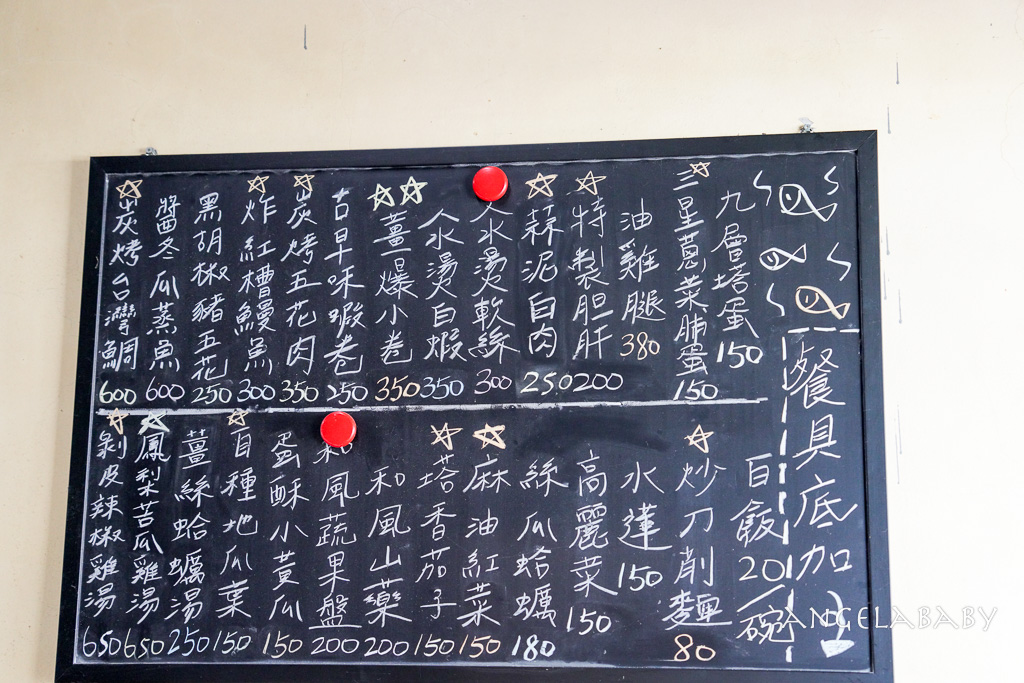 餐具底加
九層塔蛋 150
三星蔥菜脯蛋 150
油雞腿 380
特製胆肝 200
蒜泥白肉 250
汆燙軟絲 300
汆燙白蝦 350
薑爆小卷 350
古早味蝦卷 250
炭烤五花肉 350
炸紅槽鰻魚 300
黑胡椒豬五花 250
醬冬瓜蒸魚 600
炭烤台灣鯛 600
白飯20/碗
炒刀削麵 80
水蓮 150
高麗菜 150
絲瓜蛤蠣 180
麻油紅菜 150
塔香茄子 150
和風山藥 200
和風蔬果盤 200
蛋酥小黃瓜 150
自種地瓜葉 150
薑絲蛤蠣湯 250
鳳梨苦瓜雞湯 650
剝皮辣椒雞湯 650
ANGELABABY